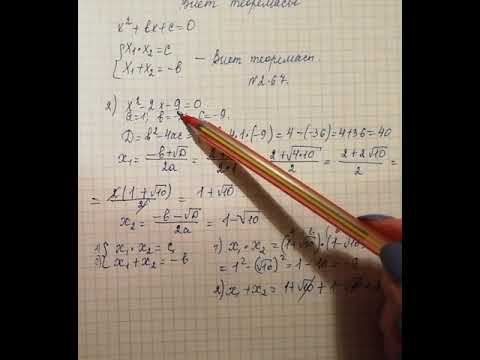 Виет теоремасы
x² + bx + c = 0
{ x₁ · x₂ = c
x₁ + x₂ = -b – Виет теоремасы.
№2.67.
2) x² - 2x - 9 = 0
a = 1; b = c = -9.
D = b² - 4ac = 4 · 1 · (-9) = 4 - (-36) = 4 + 36 = 40
x₁ = (-b + √D)/2a = = (2 + √4·10)/2 = (2 + 2√10)/2 =
= 2(1 + √10)/2 = 1 + √10
x₂ = (-b - √D)/2a = 1 - √10
1) { x₁ · x₂ = c
2) x₁ + x₂ = -b
1) x₁ · x₂ = (1 + √10) · (1 - √10
= 1² - (√10)² = 1 - 10 = -9
2) x₁ + x₂ = 1 + √10 + 1 - √10